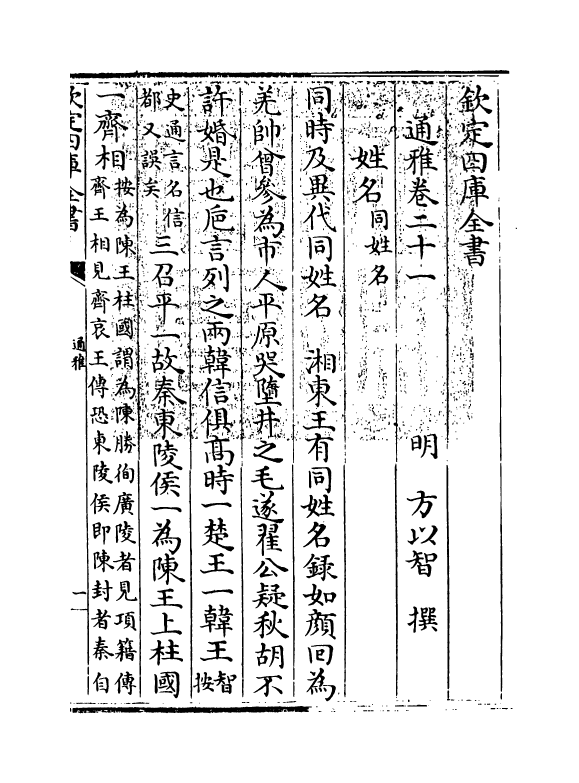 欽定四庫全書
通雅卷二十一
明 方以智 撰
姓名同姓名
同時及異代同姓名 湘東王有同姓名錄如顔回為
羌帥曾參為市人平原哭墮井之毛遂翟公疑秋胡不
許婚是也巵言列之兩韓信俱髙時一楚王一韓王智按
史通言名信都又誤矣三召平一故秦東陵侯一為陳王上柱國
一齊相按為陳王柱國謂為陳勝徇廣陵者見項籍傳齊王相見齊哀王傳恐東陵侯即陳封者秦自
欽定四庫全書
通雅
一